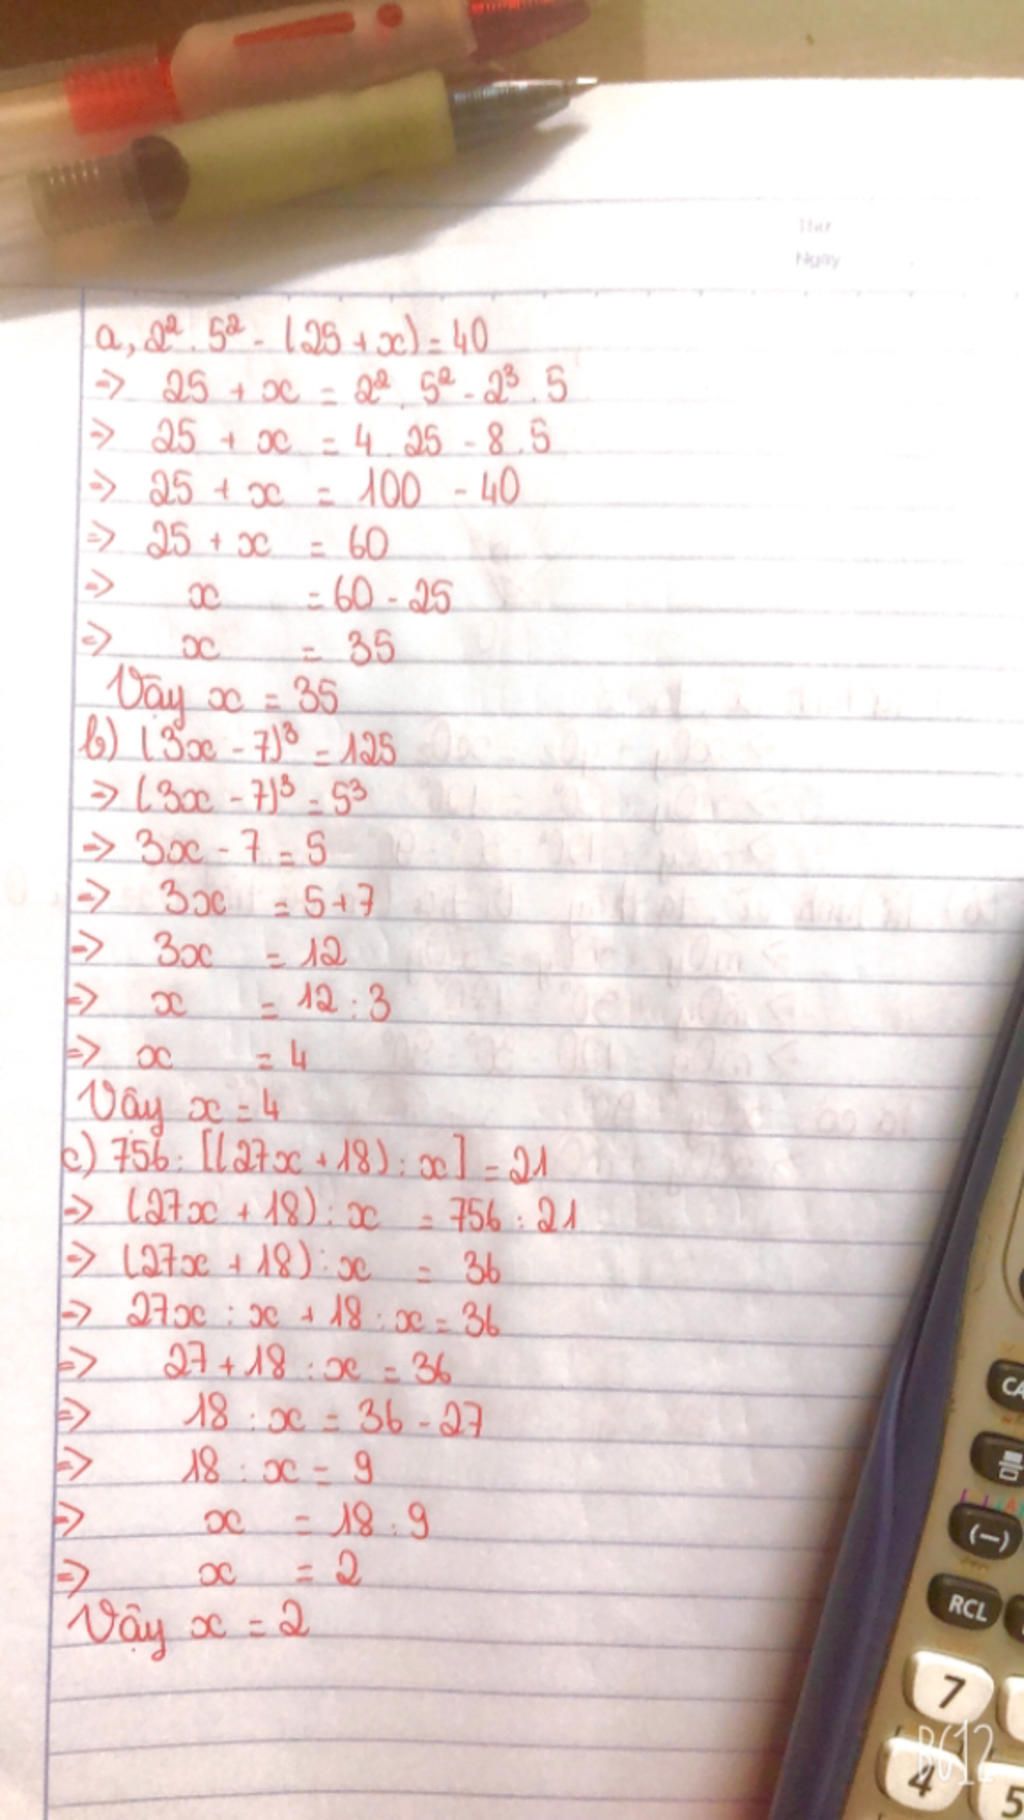 Thứ
Ngày
a, 2² . 5² - (25 + x) = 40
=> 25 + x = 2² . 5² - 2³ . 5
=> 25 + x = 4 . 25 - 8 . 5
=> 25 + x = 100 - 40
=> 25 + x = 60
=> x = 60 - 25
=> x = 35
Vậy x = 35
b) (3x - 7)³ = 125
=> (3x - 7)³ = 5³
=> 3x - 7 = 5
=> 3x = 5 + 7
=> 3x = 12
=> x = 12 : 3
=> x = 4
Vậy x = 4
c) 756 : [(27x + 18) : x] = 21
=> (27x + 18) : x = 756 : 21
=> (27x + 18) : x = 36
=> 27x : x + 18 : x = 36
=> 27 + 18 : x = 36
=> 18 : x = 36 - 27
=> 18 : x = 9
=> x = 18 : 9
=> x = 2
Vậy x = 2
CA
(-)
RCL
7
4
5
B612